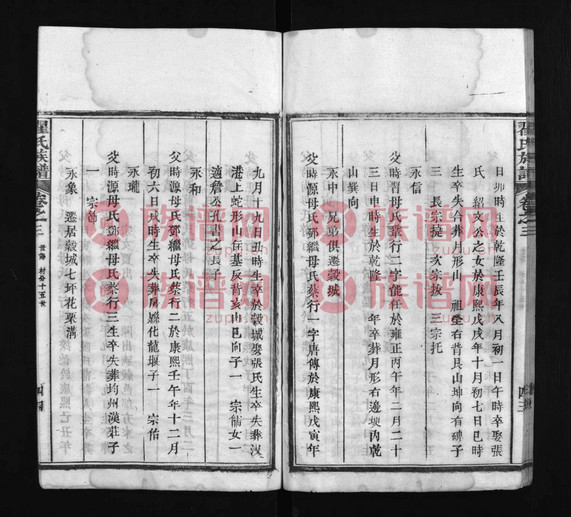 日卯時生於乾隆壬辰年八月初一日午時卒娶張
氏 紹文公之女於康熙戊戌年十月初七日巳時
生卒失合葬月形山 祖塋右首艮山坤向有碑子
三 長宗捷 次宗拔 三宗托
永信
父時習母氏蔡行二字 任於雍正丙午年二月二十
三日申時生於乾隆 年卒葬月形右邊 內乾
山巽向
永中 兄弟俱遷穀城
父時源母氏鄧繼母氏蔡行一字唐傅於康熙戊寅年
九月十九日丑時生卒於穀城娶張氏生卒失葬漢
港上蛇形山 基反背亥山巳向子一 宗 女一
適詹公孔書之長子
永和
父時源母氏鄧繼母氏蔡行二於康熙壬午年十二月
初六日戌時生卒失葬房縣化龍堰子一 宗佑
永瓏
父時源母氏鄧繼母氏蔡行三生卒失葬均州漢莊子
一 宗
永象 遷居穀城七坪花栗溝
翟氏族譜
卷之三
四三
翟氏族譜
卷之三
四四
族谱网
zupu.cn